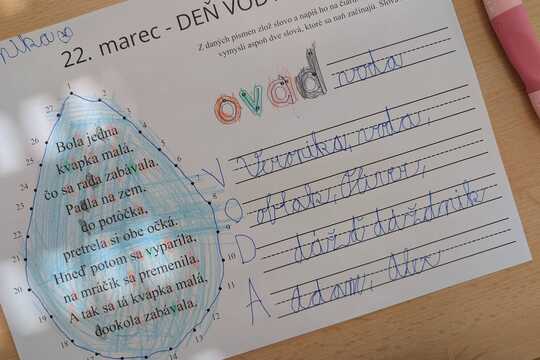 nika
22. marec - DEŇ VOD
Z daných písmen zlož slovo a napíš ho na
vymysli aspoň dve slová, ktoré sa naň začínajú.
ovad
voda
Bola jedna
kvapka malá,
čo sa rada zabávala.
Padla na zem,
do potôčka,
pretrela si obe očká.
Hneď potom sa vyparila,
na mráčik sa premenila,
A tak sa tá kvapka malá,
dookola zabávala.
V Veronika, voda,
O oblak, Oliver,
D dážď dáždnik
A Adam, Alex
1
4
5
6
8
9
10
11
12
14
16
18
19
20
21
22
25
26
27